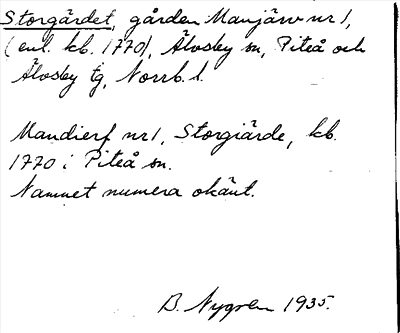 Storgärdet, gården Manjärv nr 1,
(enl. kb. 1770), Älvsby sn, Piteå och
Älvsby tg, Norrb. l.
Mandierf nr 1, Storgiärde, kb.
1770 i Piteå sn.
Namnet numera okänt.
B. Nygren 1935.